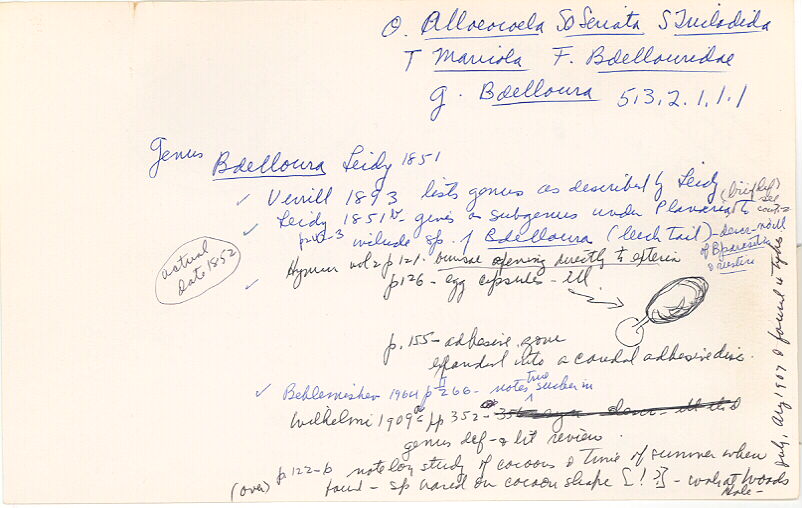 O. Alloeocoela SO Seriata S Tricladida
T Maricola F. Bdellouridae
g. Bdelloura 513.2.1.1.1
Genus Bdelloura Leidy 1851
✓ Verrill 1893 lists genus as described by Leidy (briefly)
✓ Leidy 1851 gives as subgenus under Planaria to
p 242-3 include sp. of Bdelloura (leech tail) - descr.
actual date 1852
Hyman vol 2 p 121. bursae opening directly to exterior
p 126 - egg capsules - ill.
p. 155 - adhesive zone
expanded into a caudal adhesive disc.
✓ Beklemishev 1964 p 266 - notes true sucker in
Wilhelmi 1909a pp 352 -
genus def - & lit review.
p 122-p note on study of cocoons & time of summer when
(over) found - sp based on cocoon shape [!?] - work at Woods
Hole -
July, Aug 1907 & found 4 types